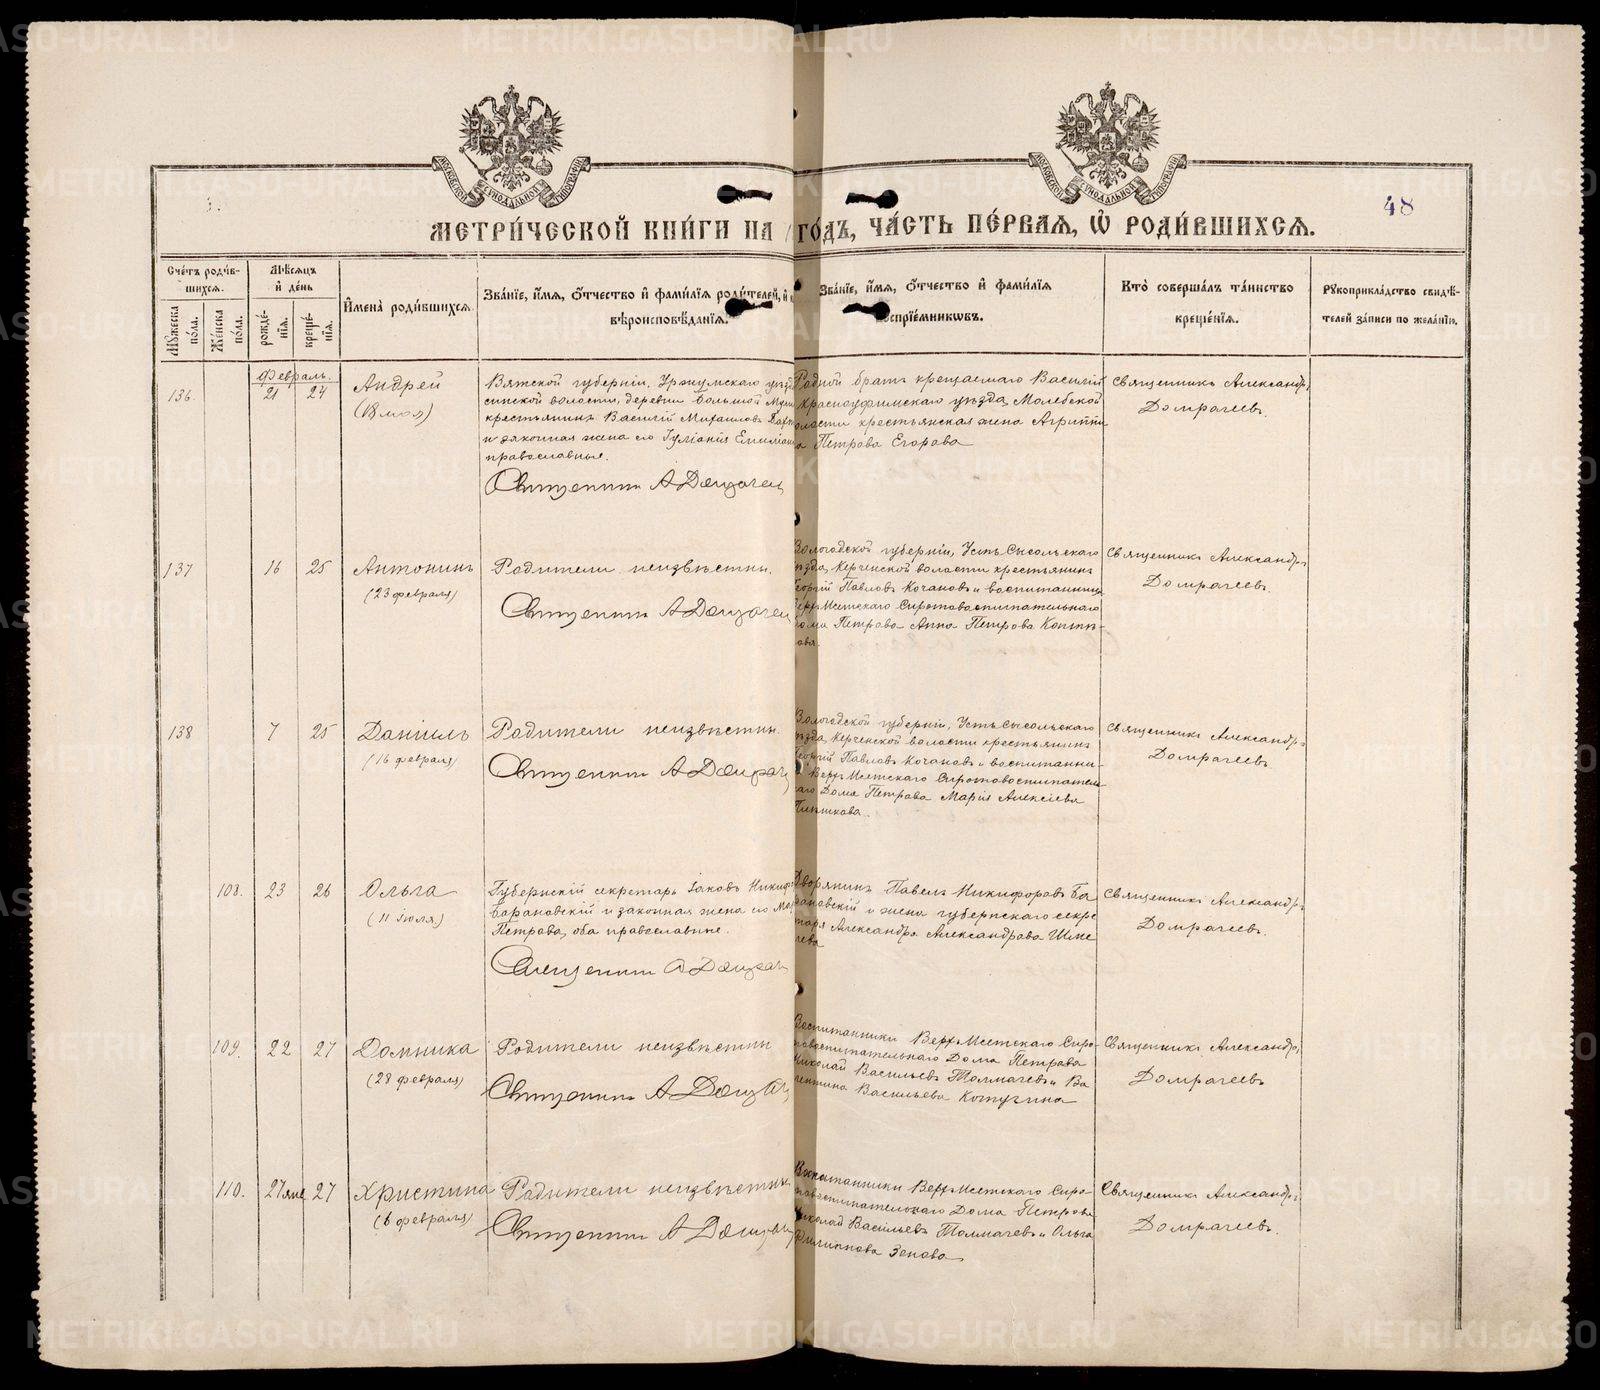 METRIKI.GASO-URAL.RU
МОСКОВСКОЙ СѴНОДАЛЬНОЙ ТИПОГРАФІИ
МОСКОВСКОЙ СѴНОДАЛЬНОЙ ТИПОГРАФІИ
3.
48
МЕТРИ́ЧЕСКОЙ КНИ́ГИ НА ГО́ДЪ, ЧА́СТЬ ПЕ́РВАЯ, Ѡ РОДИ́ВШИХСЯ.
Сче́тъ роди́в-
шихся.
Мѣ́сяцъ
и̂ де́нь
Мꙋ́жеска по́ла.
Же́нска по́ла.
рожде́-
нїя.
креще́-
нїя.
И̂мена̀ роди́вшихся.
Зва́нїе, и̂́мя, о́тчество и̂ фами́лїя роди́телей, и̂
вѣ̀роисповѣ́данїя.
Зва́нїе, и̂́мя, о́тчество и̂ фами́лїя
воспрїе́мникѡвъ.
Кто̀ соверша́лъ та́инство
креще́нїя.
Рꙋкоприкла́дство свидѣ́-
телей за́писи по жела́нїю.
Февраль.
136.
21
24
Андрей
(18 мая)
Вятской губерніи, Уржумскаго уѣзд
синской волости, деревни Большой
крестьянинъ Василій Михаиловъ
и законная жена его Іуліанія Емиліан
православные.
Священникъ А Домрачев
Родной братъ крещаемаго Василій
Красноуфимскаго уѣзда, Молебской
волости крестьянская жена Агриппи
на Петрова Егорова
Священникъ Александръ
Домрачевъ.
137
16
25
Антонинъ
(23 февраля)
Родители неизвѣстны.
Священникъ А Домрачев
Вологодской губерніи, Усть Сысольскаго
уѣзда, Керченской волости крестьянинъ
Георгій Павловъ Качановъ и воспитанница
Верх-Исетскаго Сиротовоспитательнаго
Дома Петрова Анна Петрова
ова.
Священникъ Александръ
Домрачевъ.
138
7
25
Даніилъ
(16 февраля)
Родители неизвѣстны.
Священникъ А Домрач
Вологодской губерніи, Усть Сысольскаго
уѣзда, Керченской волости крестьянинъ
Георгій Павловъ Качановъ и воспитанни-
ца Верх-Исетскаго Сиротовоспитатель
наго Дома Петрова Марія Алексіева
Священникъ Александръ
Домрачевъ.
108.
23
26
Ольга
(11 Іюля)
Губернскій секретарь Іаковъ Никиф
Барановскій и законная жена его Мар
Петрова, оба православные.
Священникъ А Домрач
Дворянинъ Павелъ Никифоровъ Ба
рановскій и жена губернскаго секре
таря Александра Александрова Шме
лева
Священникъ Александръ
Домрачевъ.
109.
22
27
Домника
(28 февраля)
Родители неизвѣстны
Священникъ А Домрач
Воспитанники Верх-Исетскаго Сиро-
товоспитательнаго Дома Петрова
Николай Васильевъ Толмачевъ и Ва
лентина Васильева Котугина
Священникъ Александръ
Домрачевъ
110.
27 янв
27
Христина
(6 февраля)
Родители неизвѣстны
Священникъ А Домрач
Воспитанники Верх-Исетскаго Сиро-
товоспитательнаго Дома Петрова
Николай Васильевъ Толмачевъ и Ольга
Филиппова Зенова
Священникъ Александръ
Домрачевъ.